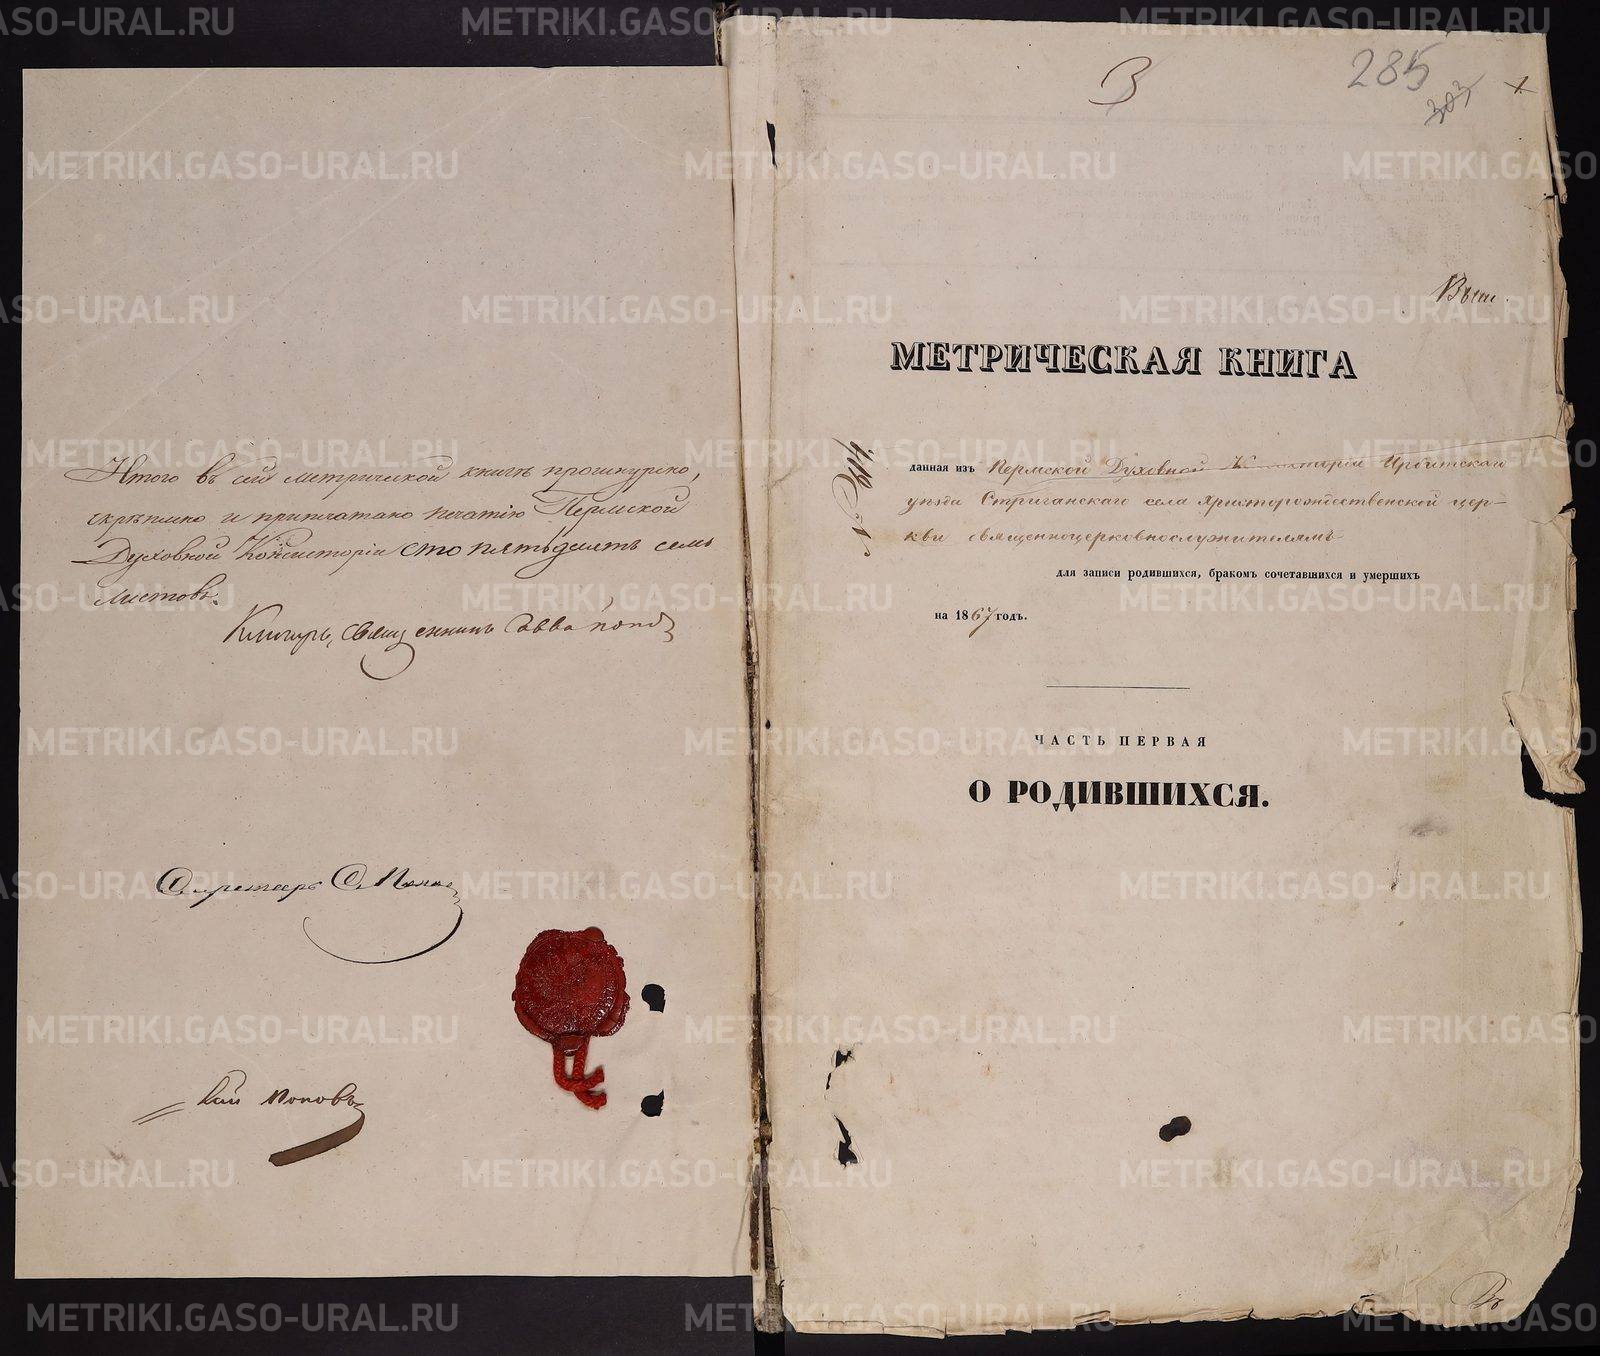 Итого въ сей метрической книгѣ прошнурено,
скрѣплено и припечатано печатію Пермской
Духовной Консисторіи сто пятьдесятъ семь
листовъ.
священникъ Савва Поповъ
Секретарь
Поповъ
3
285
303
1
МЕТРИЧЕСКАЯ КНИГА
данная изъ Пермской Духовной Консисторіи Ирбитскаго
уѣзда Стриганскаго села Христорождественской цер-
кви священноцерковнослужителямъ
для записи родившихся, бракомъ сочетавшихся и умершихъ
на 1867 годъ.
ЧАСТЬ ПЕРВАЯ
О РОДИВШИХСЯ.
METRIKI.GASO-URAL.RU